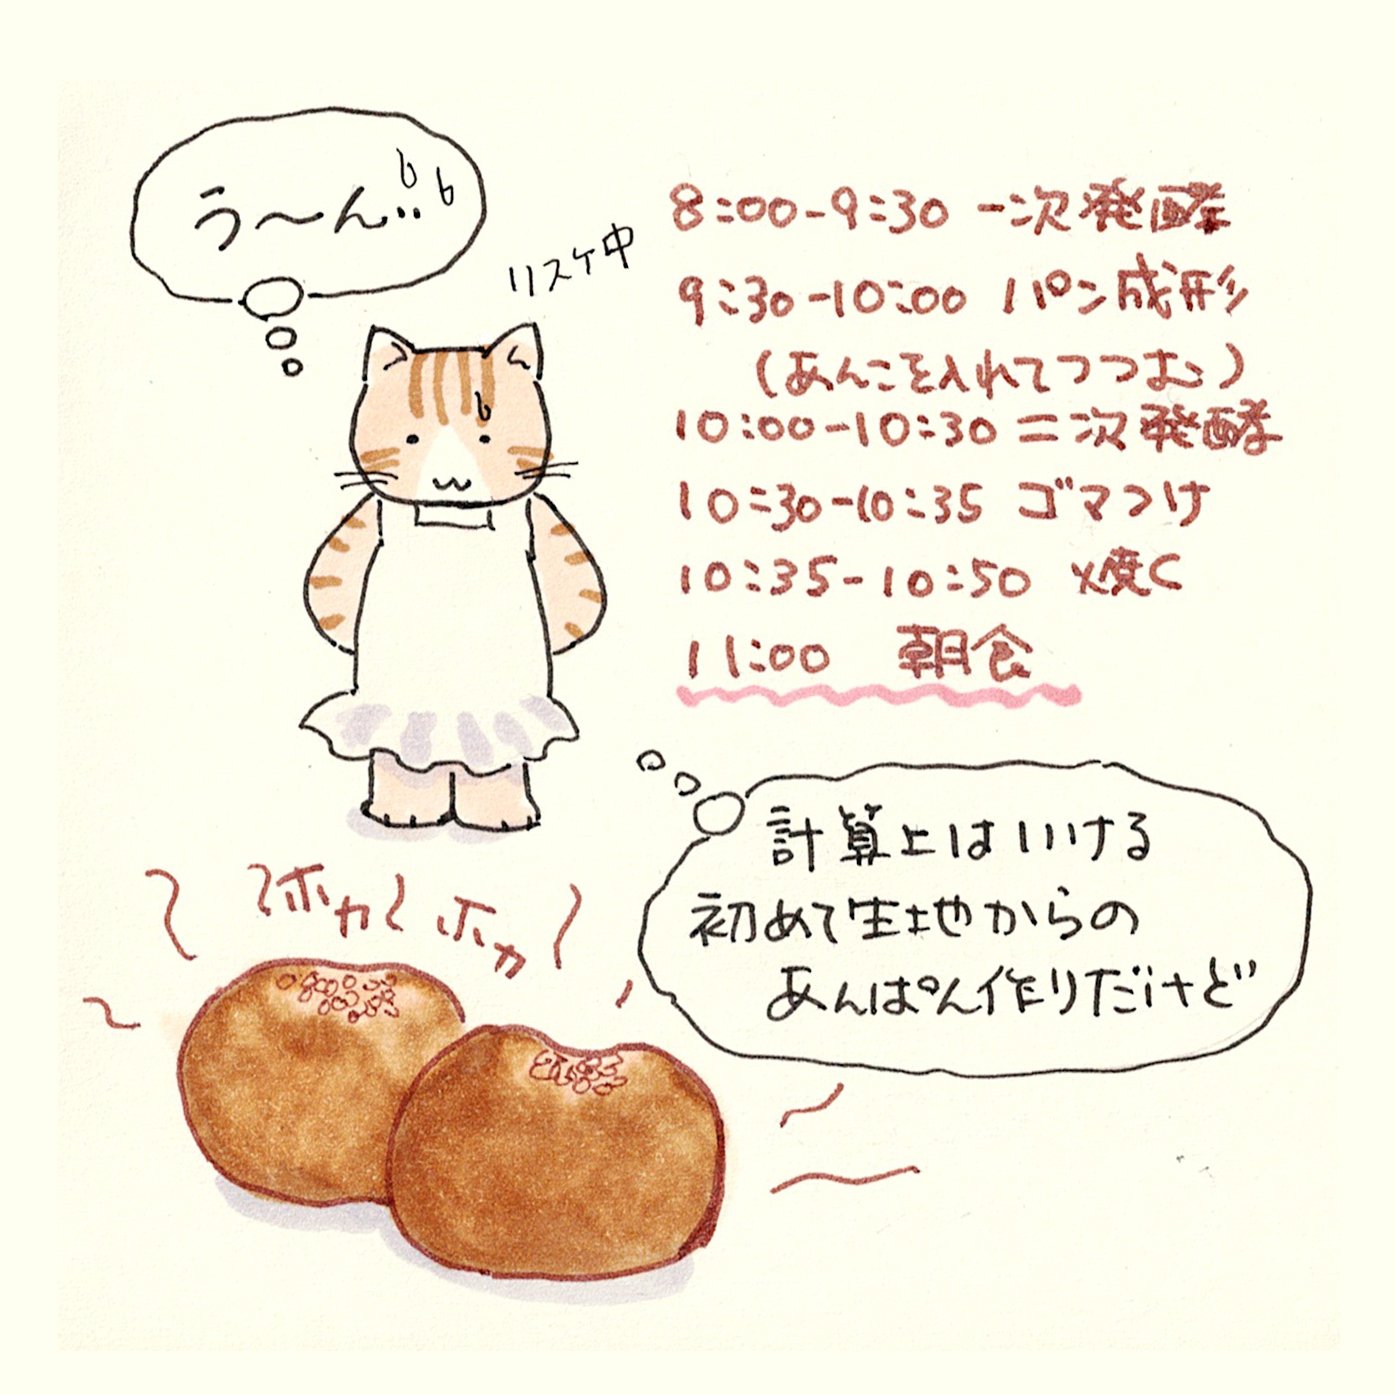 う〜ん‥
リスケ中
8:00-9:30 一次発酵
9:30-10:00 パン成形
(あんこを入れてつつむ)
10:00-10:30 二次発酵
10:30-10:35 ゴマつけ
10:35-10:50 焼く
11:00 朝食
計算上はいける
初めて生地からの
あんぱん作りだけど
ホカホカ